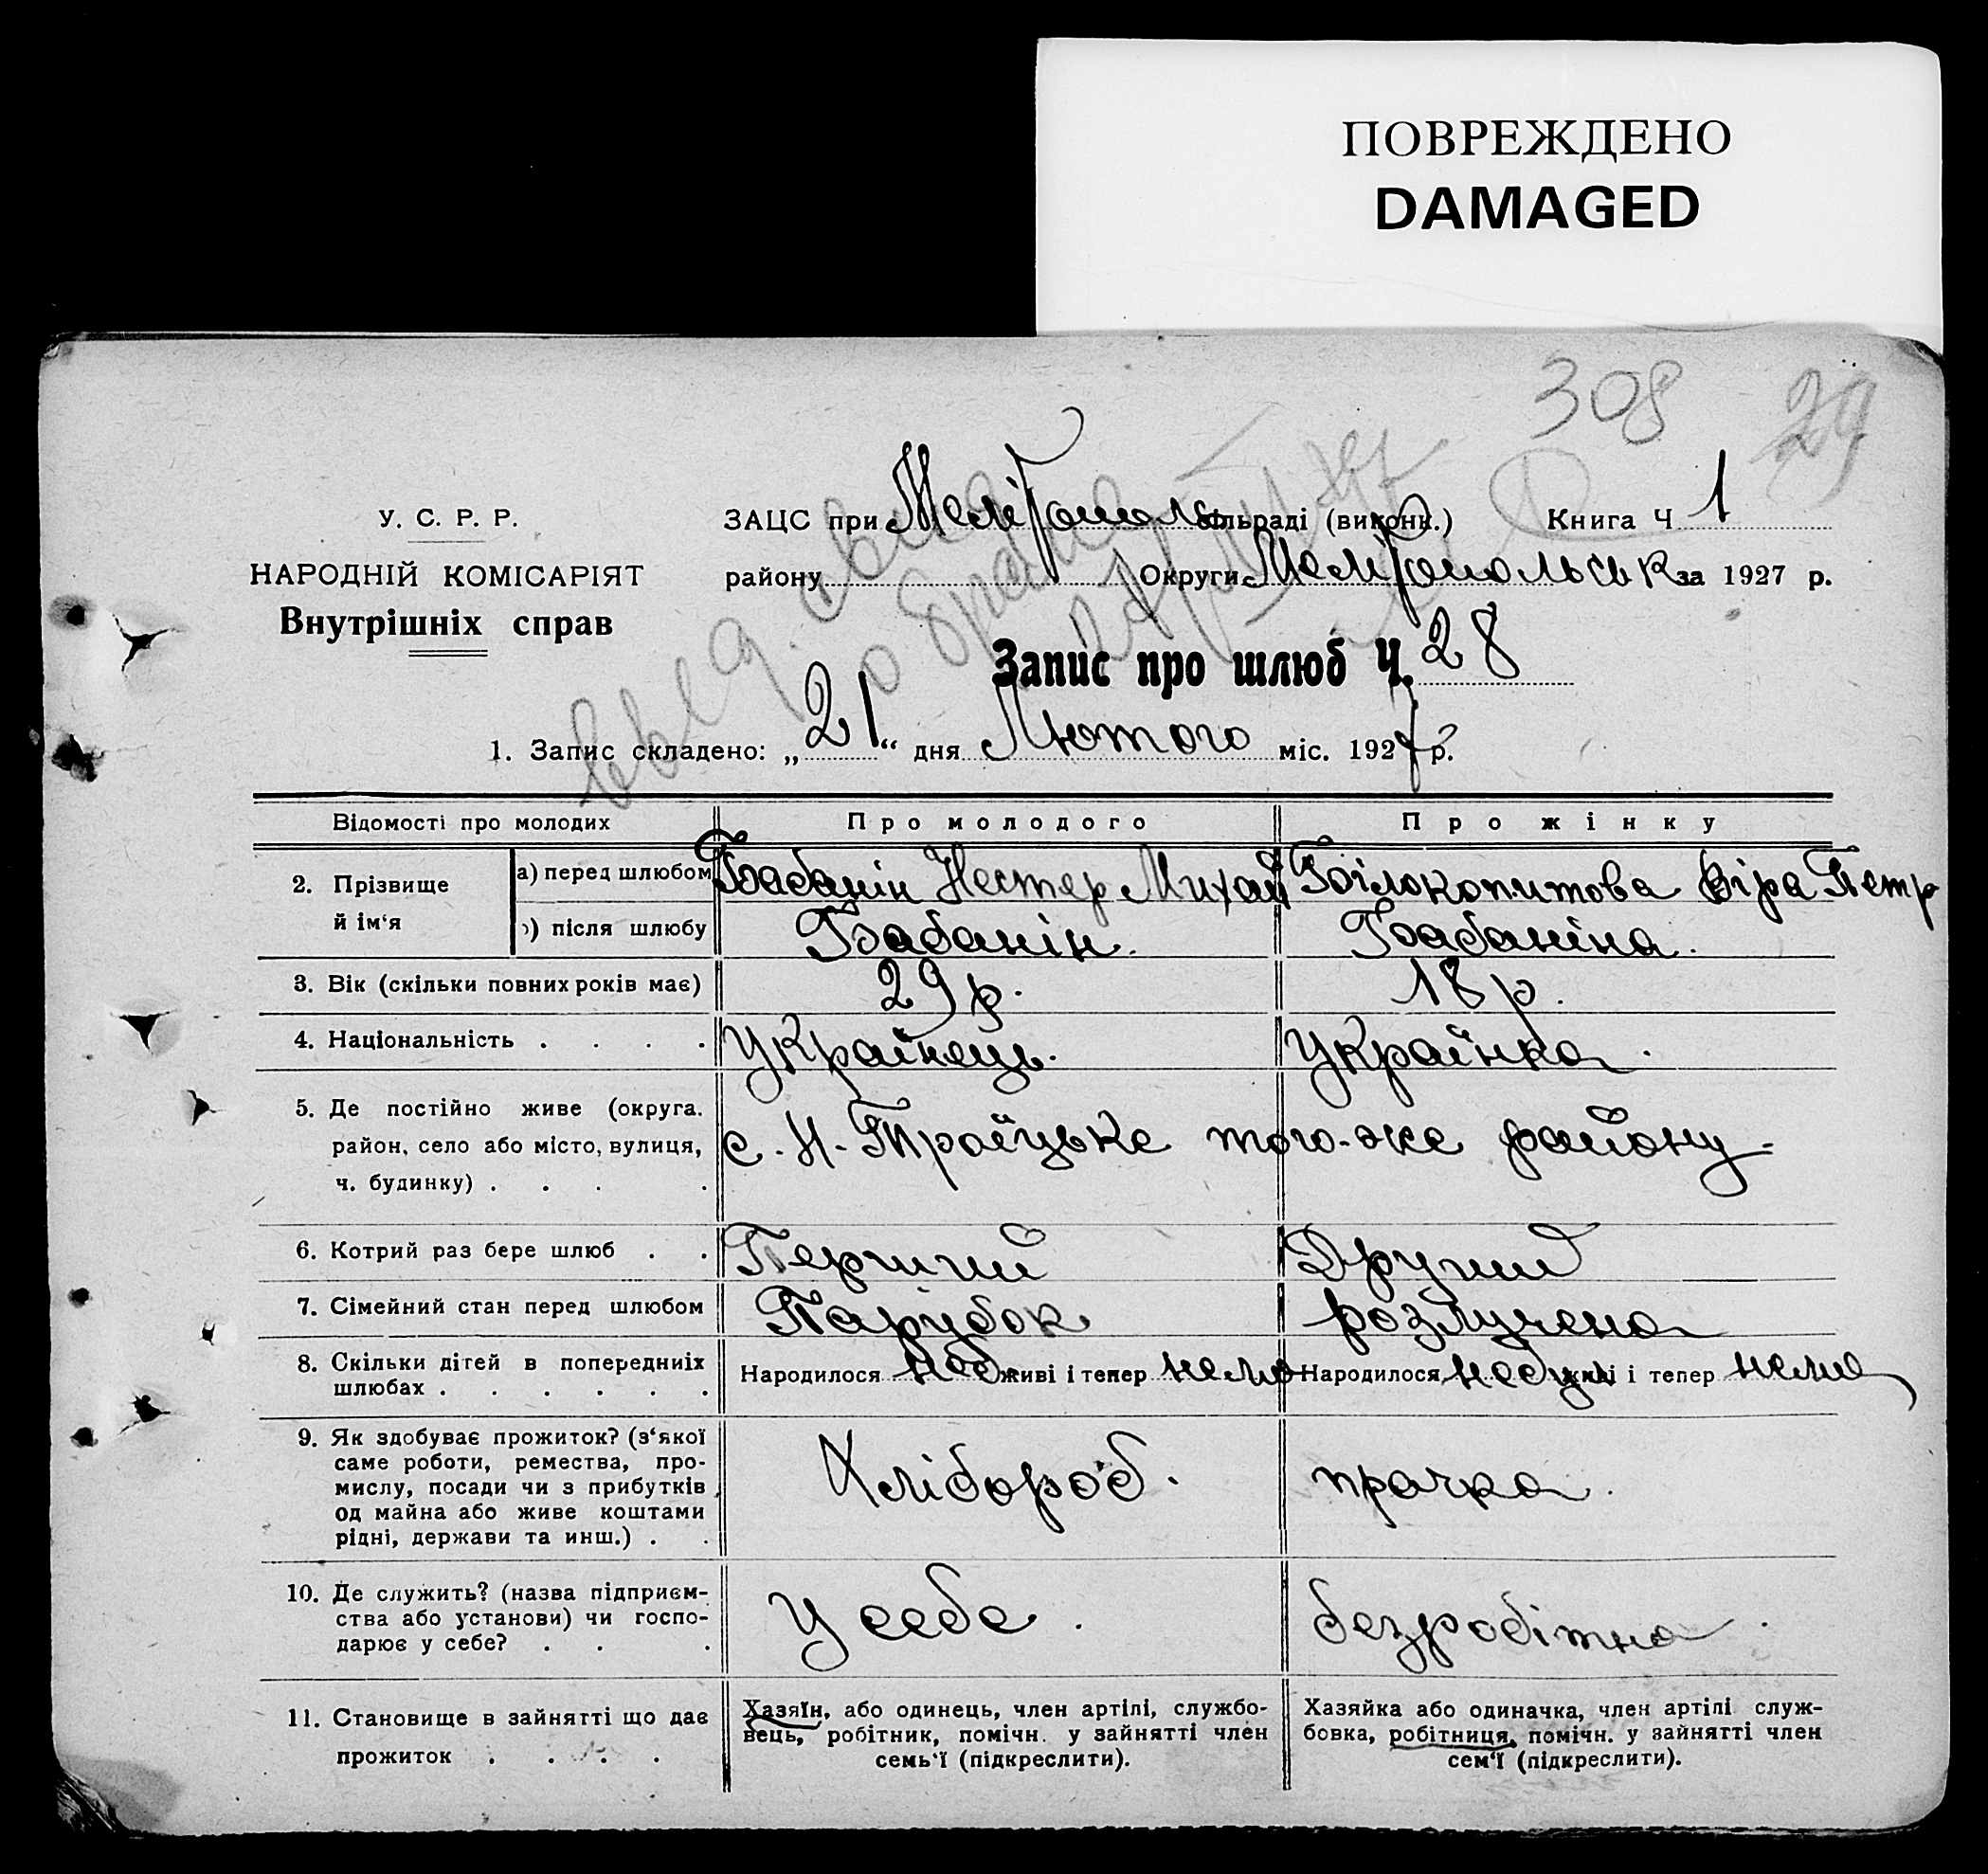 ПОВРЕЖДЕНО
DAMAGED
308 29
У. С. Р. Р.
НАРОДНІЙ КОМІСАРІЯТ
Внутрішніх справ
ЗАЦС при Мелітополь сільраді (виконк.) Книга Ч 1
району Округи Мелітопольськ за 1927 р.
Запис про шлюб Ч. 28
1. Запис складено: „21“ дня Лютого міс. 1927 р.
Відомості про молодих Про молодого Про жінку
2. Прізвище й ім‘я
а) перед шлюбом Бабанін Нестер Михай Білокопитова Віра Петр
) після шлюбу Бабанін. Бабаніна.
3. Вік (скільки повних років має) 29 р. 18 р.
4. Національність . . . . Українець. Українка.
5. Де постійно живе (округа.
район, село або місто, вулиця,
ч. будинку) . . . .
с. Н.-Троїцьке того-же району
6. Котрий раз бере шлюб . . Перший Другий
7. Сімейний стан перед шлюбом Парубок розлучена
8. Скільки дітей в попередниіх
шлюбах . . . . . .
Народилося живі і тепер нема Народилося живі і тепер нема
9. Як здобуває прожиток? (з‘якої
саме роботи, ремества, про-
мислу, посади чи з прибутків
од майна або живе коштами
рідні, держави та инш.) . .
Хлібороб. прачка.
10. Де служить? (назва підприєм-
ства або установи) чи госпо-
дарює у себе? . . .
У себе. безробітна.
11. Становище в зайнятті що дає
прожиток . . . .
Хазяїн, або одинець, член артілі, службо-
вець, робітник, помічн. у зайнятті член
семь‘ї (підкреслити).
Хазяйка або одиначка, член артілі служ-
бовка, робітниця, помічн. у зайнятті член
сем‘ї (підкреслити).